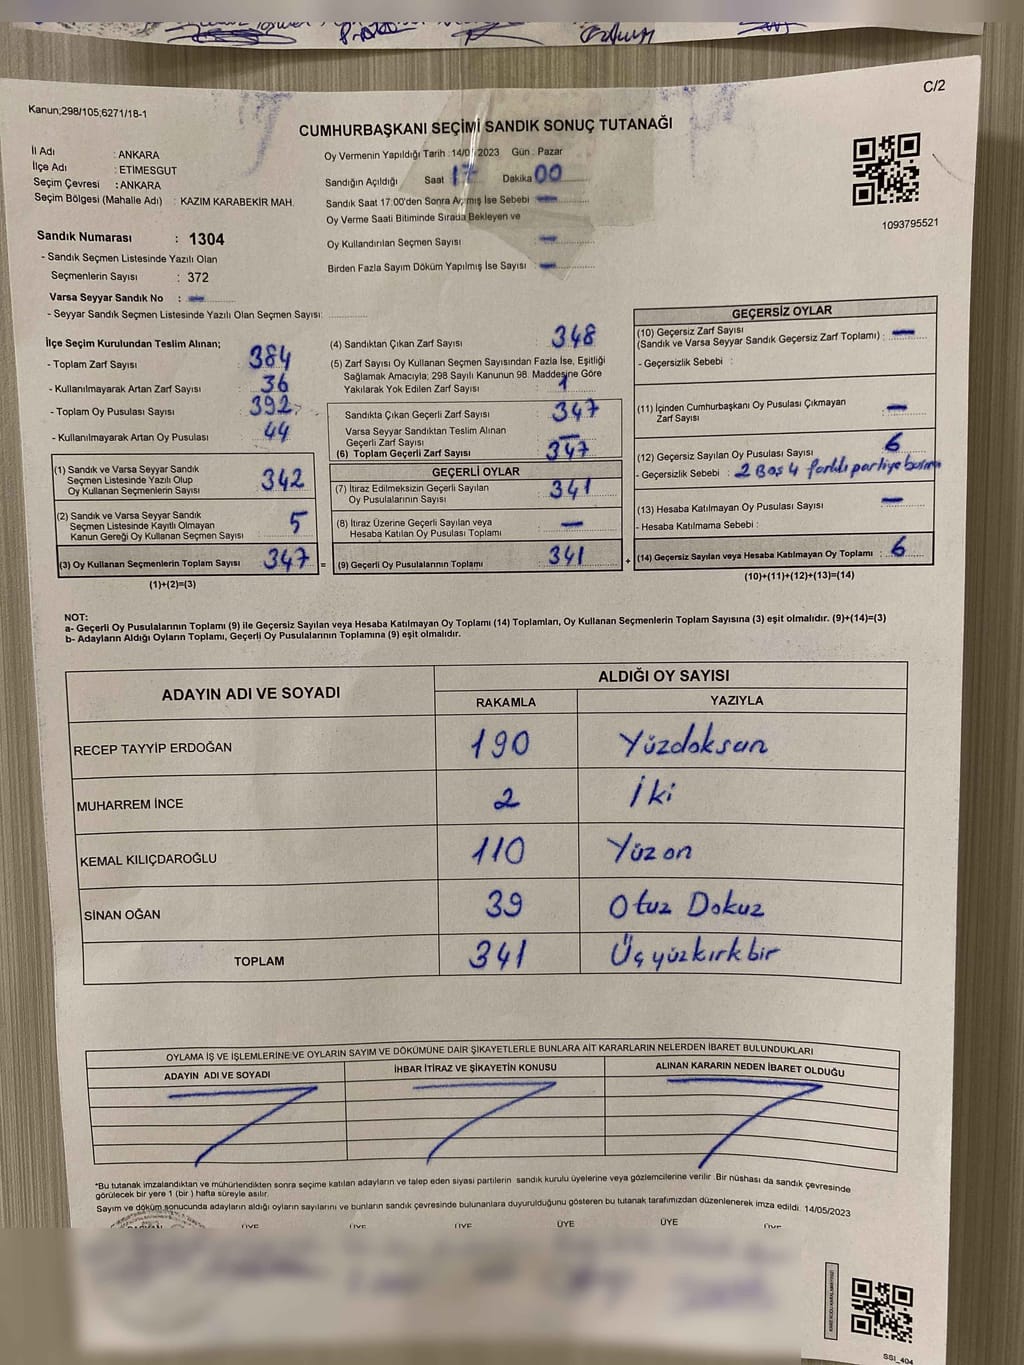 C/2
Kanun;298/105;6271/18-1
CUMHURBAŞKANI SEÇİMİ SANDIK SONUÇ TUTANAĞI
İl Adı : ANKARA
İlçe Adı : ETİMESGUT
Seçim Çevresi : ANKARA
Seçim Bölgesi (Mahalle Adı) : KAZIM KARABEKİR MAH.
Sandık Numarası : 1304
- Sandık Seçmen Listesinde Yazılı Olan
Seçmenlerin Sayısı : 372
Varsa Seyyar Sandık No : —
- Seyyar Sandık Seçmen Listesinde Yazılı Olan Seçmen Sayısı:
Oy Vermenin Yapıldığı Tarih : 14/0 2023 Gün : Pazar
Sandığın Açıldığı Saat 17 Dakika 00
Sandık Saat 17:00'den Sonra Açmış İse Sebebi —
Oy Verme Saati Bitiminde Sırada Bekleyen ve
Oy Kullandırılan Seçmen Sayısı : —
Birden Fazla Sayım Döküm Yapılmış İse Sayısı : —
1093795521
İlçe Seçim Kurulundan Teslim Alınan;
- Toplam Zarf Sayısı : 384
- Kullanılmayarak Artan Zarf Sayısı : 36
- Toplam Oy Pusulası Sayısı : 392
- Kullanılmayarak Artan Oy Pusulası : 44
(1) Sandık ve Varsa Seyyar Sandık
Seçmen Listesinde Yazılı Olup
Oy Kullanan Seçmenlerin Sayısı : 342
(2) Sandık ve Varsa Seyyar Sandık
Seçmen Listesinde Kayıtlı Olmayan
Kanun Gereği Oy Kullanan Seçmen Sayısı : 5
(3) Oy Kullanan Seçmenlerin Toplam Sayısı : 347 =
(1)+(2)=(3)
(4) Sandıktan Çıkan Zarf Sayısı : 348
(5) Zarf Sayısı Oy Kullanan Seçmen Sayısından Fazla İse, Eşitliği
Sağlamak Amacıyla; 298 Sayılı Kanunun 98. Maddesine Göre
Yakılarak Yok Edilen Zarf Sayısı : 1
Sandıkta Çıkan Geçerli Zarf Sayısı : 347
Varsa Seyyar Sandıktan Teslim Alınan
Geçerli Zarf Sayısı : —
(6) Toplam Geçerli Zarf Sayısı : 347
GEÇERLİ OYLAR
(7) İtiraz Edilmeksizin Geçerli Sayılan
Oy Pusulalarının Sayısı : 341
(8) İtiraz Üzerine Geçerli Sayılan veya
Hesaba Katılan Oy Pusulası Toplamı : —
(9) Geçerli Oy Pusulalarının Toplamı : 341 +
GEÇERSİZ OYLAR
(10) Geçersiz Zarf Sayısı
(Sandık ve Varsa Seyyar Sandık Geçersiz Zarf Toplamı) : —
- Geçersizlik Sebebi :
(11) İçinden Cumhurbaşkanı Oy Pusulası Çıkmayan
Zarf Sayısı : —
(12) Geçersiz Sayılan Oy Pusulası Sayısı : 6
- Geçersizlik Sebebi : 2 Boş 4 farklı partiye
(13) Hesaba Katılmayan Oy Pusulası Sayısı : —
- Hesaba Katılmama Sebebi :
(14) Geçersiz Sayılan veya Hesaba Katılmayan Oy Toplamı : 6
(10)+(11)+(12)+(13)=(14)
NOT:
a- Geçerli Oy Pusulalarının Toplamı (9) ile Geçersiz Sayılan veya Hesaba Katılmayan Oy Toplamı (14) Toplamları, Oy Kullanan Seçmenlerin Toplam Sayısına (3) eşit olmalıdır. (9)+(14)=(3)
b- Adayların Aldığı Oyların Toplamı, Geçerli Oy Pusulalarının Toplamına (9) eşit olmalıdır.
ADAYIN ADI VE SOYADI ALDIĞI OY SAYISI
RAKAMLA YAZIYLA
RECEP TAYYİP ERDOĞAN 190 Yüzdoksan
MUHARREM İNCE 2 İki
KEMAL KILIÇDAROĞLU 110 Yüz on
SİNAN OĞAN 39 Otuz Dokuz
TOPLAM 341 Üçyüzkırkbir
OYLAMA İŞ VE İŞLEMLERİNE VE OYLARIN SAYIM VE DÖKÜMÜNE DAİR ŞİKAYETLERLE BUNLARA AİT KARARLARIN NELERDEN İBARET BULUNDUKLARI
ADAYIN ADI VE SOYADI İHBAR İTİRAZ VE ŞİKAYETİN KONUSU ALINAN KARARIN NEDEN İBARET OLDUĞU
*Bu tutanak imzalandıktan ve mühürlendikten sonra seçime katılan adayların ve talep eden siyasi partilerin sandık kurulu üyelerine veya gözlemcilerine verilir. Bir nüshası da sandık çevresinde
görülecek bir yere 1 (bir) hafta süreyle asılır.
Sayım ve döküm sonucunda adayların aldığı oyların sayılarını ve bunların sandık çevresinde bulunanlara duyurulduğunu gösteren bu tutanak tarafımızdan düzenlenerek imza edildi. 14/05/2023
ÜYE ÜYE ÜYE ÜYE ÜYE ÜYE
SSİ_404